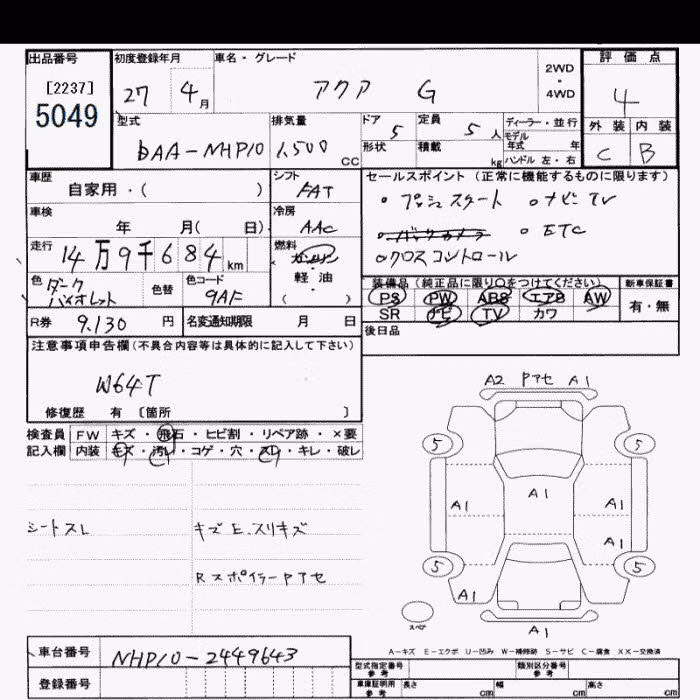 出品番号 初度登録年月 車名・グレード 評価点
[2237]
5049
27 4月 アクア G 2WD・4WD 4
型式 排気量 ドア 5 定員 5人 ディーラー・並行 外装 内装
DAA-NHP10 1,500cc 形状 積載 kg モデル年式 年 C B
ハンドル 左・右
車歴 シフト セールスポイント (正常に機能するものに限ります)
自家用・( ) FAT ・プッシュスタート ・ナビTV
車検 冷房 ・バックカメラ ・ETC
年 月( 日) AAC ・クロスコントロール
走行 燃料
14万9千684km ガソリン・軽油
色 色替 色コード ( ) 装備品 (純正品に限り○をつけてください) 新車保証書
ダークバイオレット 9AF PS PW ABS エアB AW 有・無
R券 9.130円 名変通知期限 月 日 SR ナビ TV カワ
後日品
注意事項申告欄 (不具合内容等は具体的に記入して下さい)
W64T
修復歴 有 [箇所 ]
A2 Pアセ A1
検査員 FW キズ・飛石・ヒビ割・リペア跡・×要
記入欄 内装 キズ・汚レ・コゲ・穴・スレ・キレ・破レ
5 5
A1 A1 A1
シートスレ キズE.スリキズ
A1
Rスポイラー Pアセ
5 5
A1
スペア A1
A-キズ E-エクボ U-凹み W-補修跡 S-サビ C-腐食 XX-交換済
車台番号 NHP10-2449643
型式指定番号 参考 類別区分番号 参考
登録番号 車庫証明用 参考 長さ cm 幅 cm 高さ cm